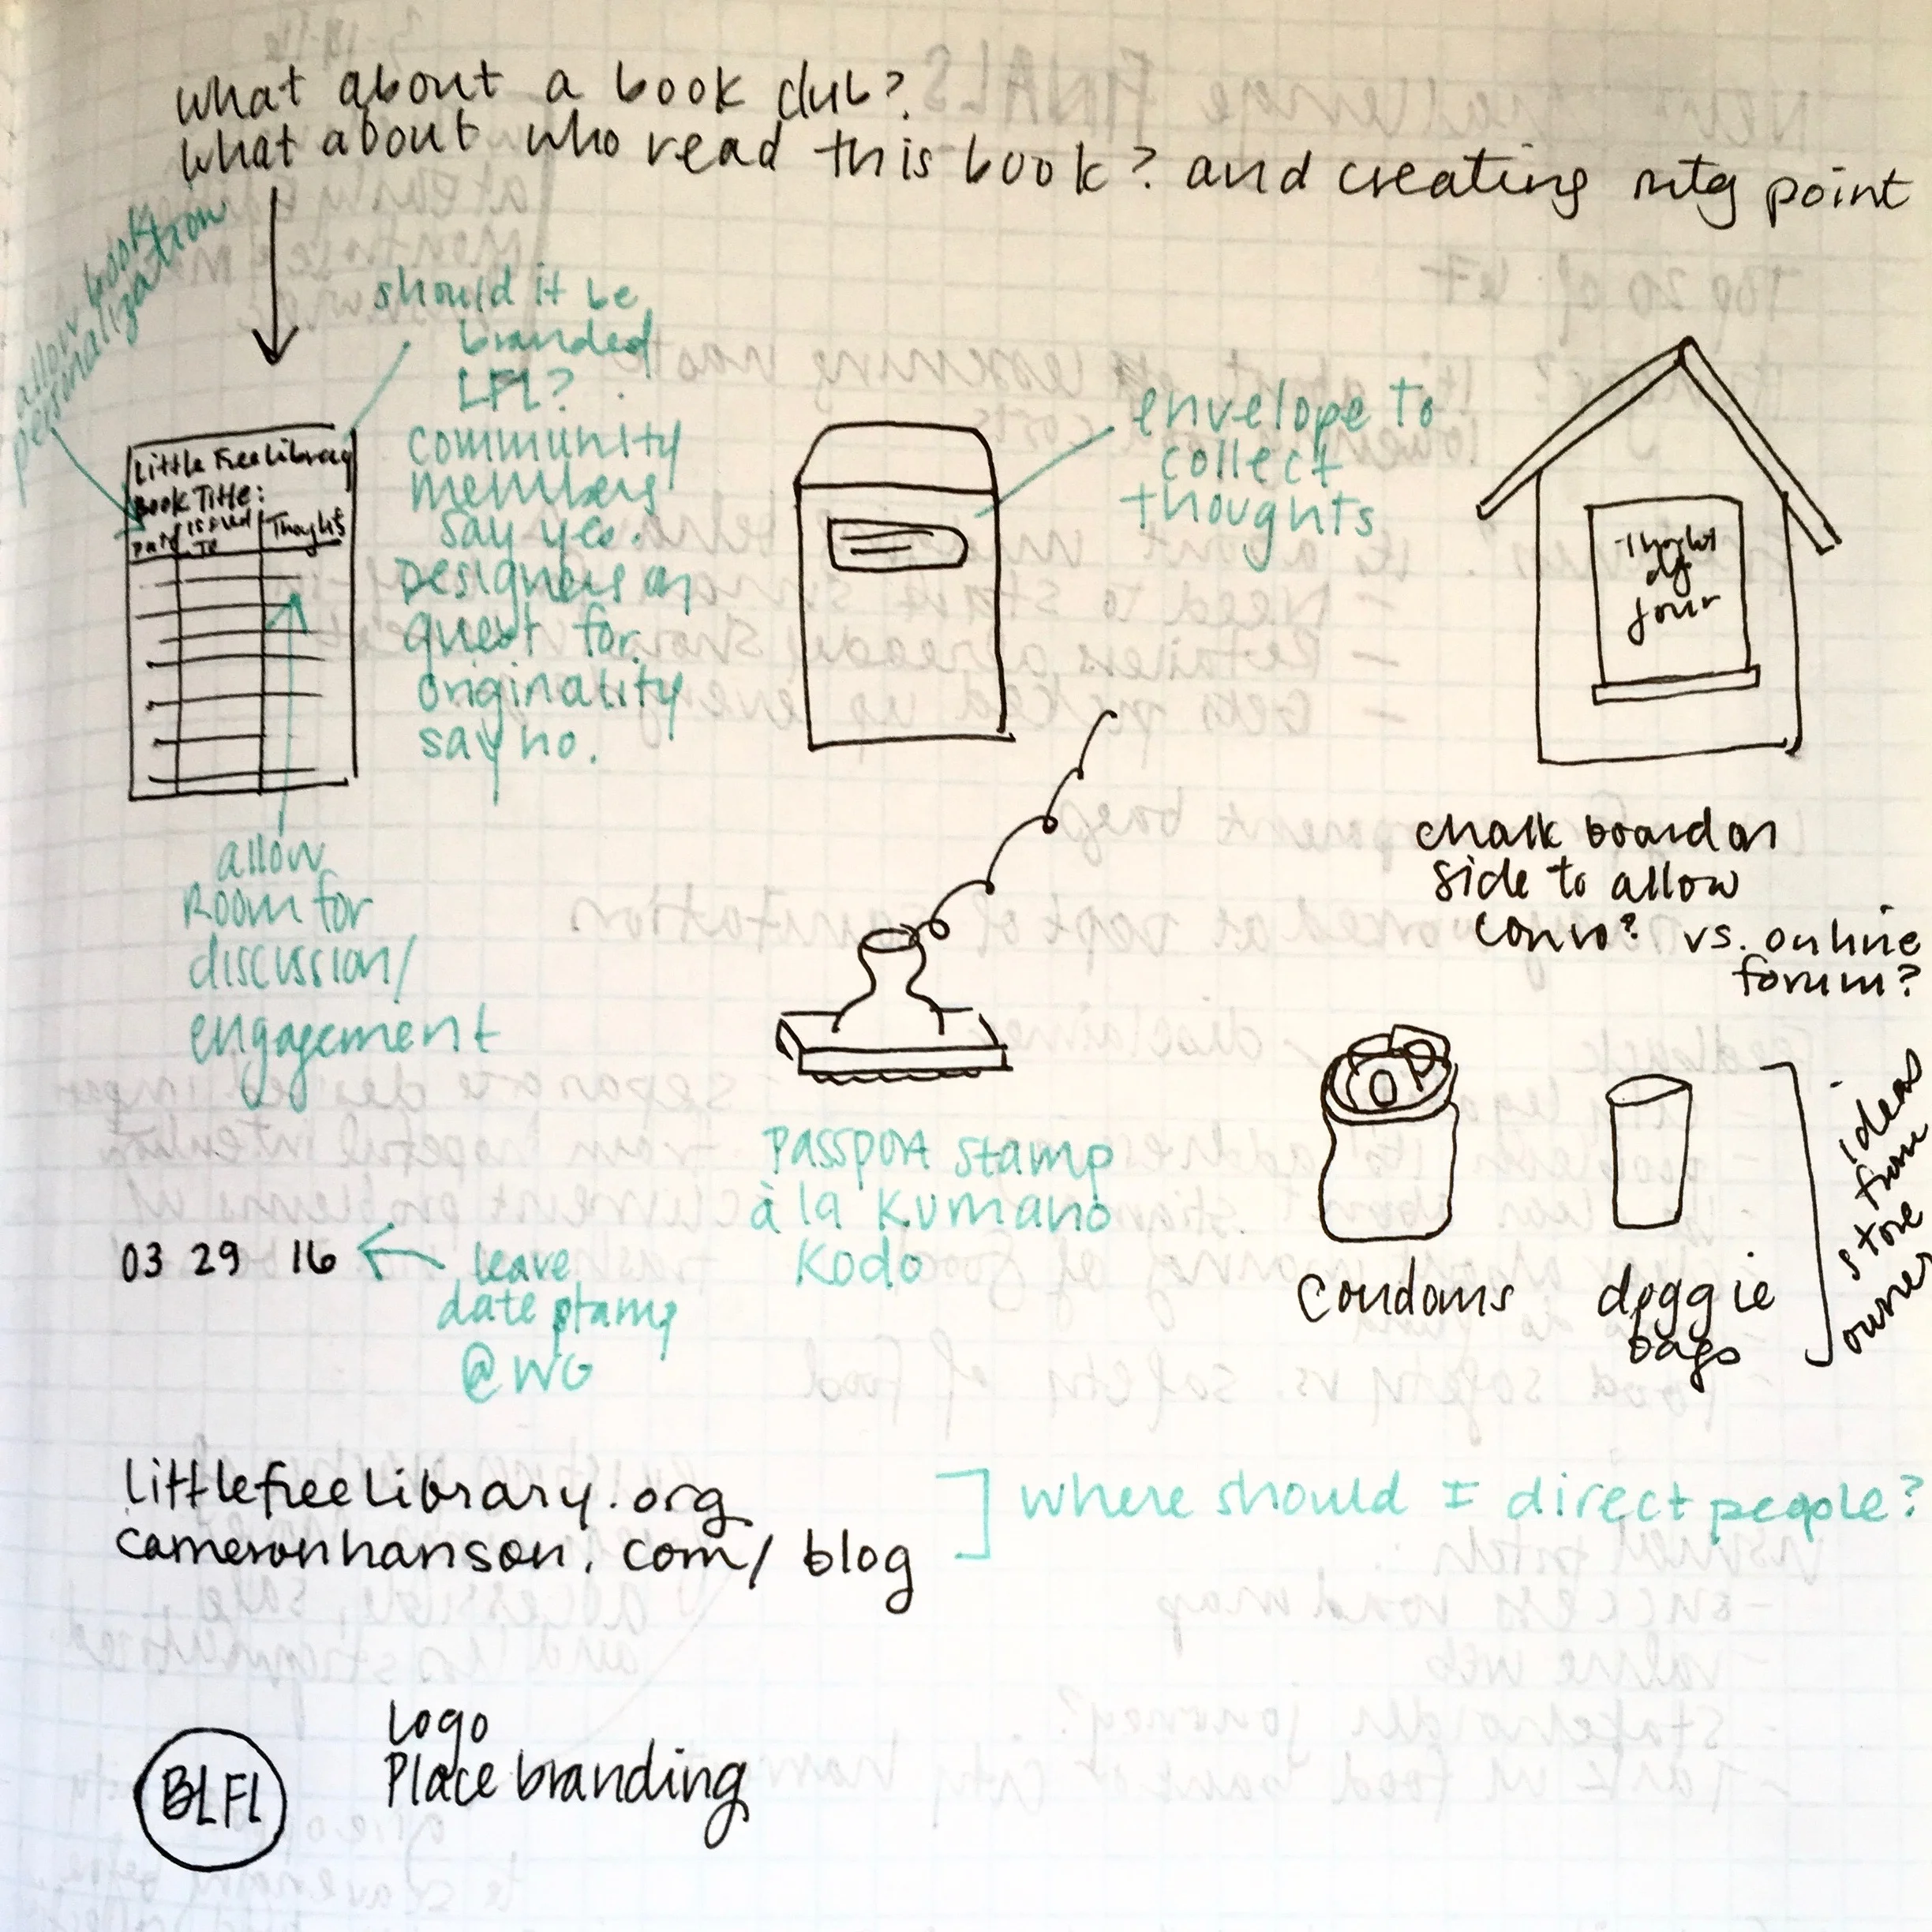 what about a book club?
what about who read this book? and creating mtg point
allow book
personalization
should it be
branded
LFL?
community
members
say yes.
Designers on
quest for
originality
say no.
Little Free Library
Book Title:
Date
Issued
To
Thoughts
allow
Room for
discussion/
engagement
envelope to
collect
thoughts
chalk board on
side to allow
convo? vs. online
forum?
Passport stamp
à la Kumano
Kodo
condoms
doggie
bags
ideas
from
store
owner
03 29 16
leave
date stamp
@ WG
littlefreelibrary.org
cameronhanson.com/blog
where should I direct people?
BLFL
Logo
Place branding